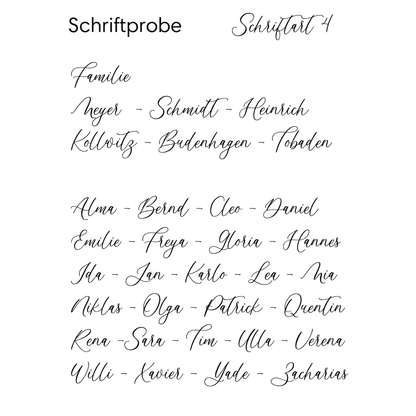 Schriftprobe Schriftart 4
Familie
Meyer - Schmidt - Heinrich
Kollwitz - Budenhagen - Tobaden
Alma - Bernd - Cleo - Daniel
Emilie - Freya - Gloria - Hannes
Ida - Jan - Karlo - Lea - Mia
Niklas - Olga - Patrick - Quentin
Rena -Sara - Tim - Ulla - Verena
Willi - Xavier - Yade - Zacharias